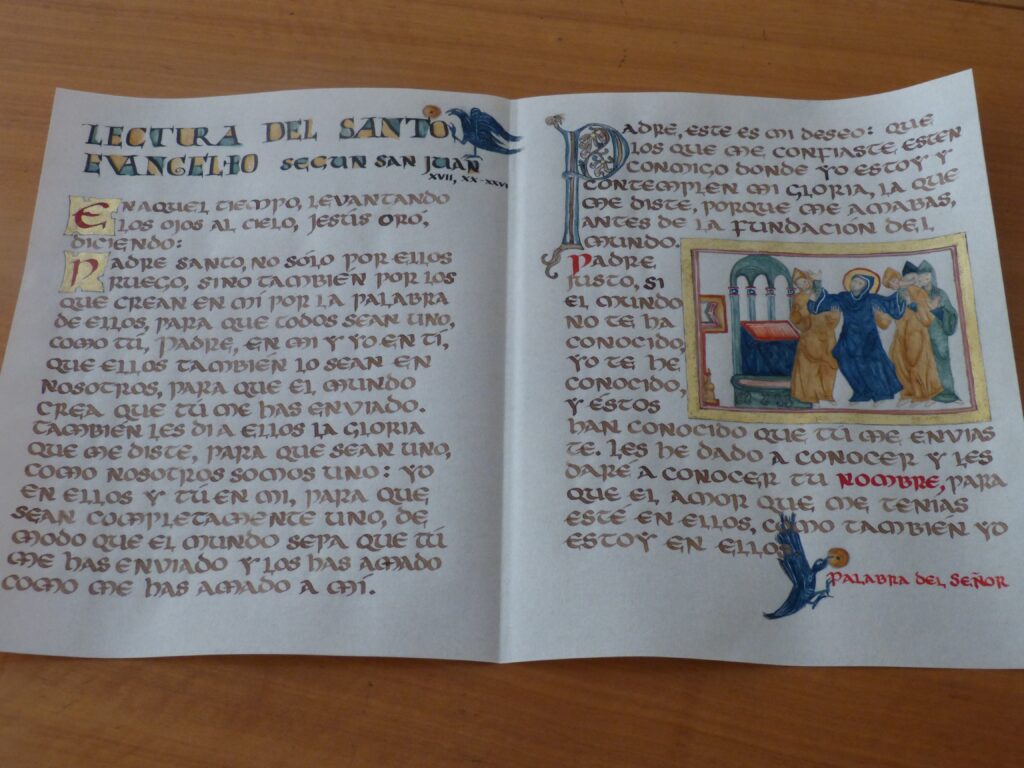 LECTURA DEL SANTO
EVANGELIO SEGUN SAN JUAN
XVII, XX-XXVI
EN AQUEL TIEMPO, LEVANTANDO
LOS OJOS AL CIELO, JESÚS ORÓ,
DICIENDO:
PADRE SANTO, NO SÓLO POR ELLOS
RUEGO, SINO TAMBIÉN POR LOS
QUE CREAN EN MÍ POR LA PALABRA
DE ELLOS, PARA QUE TODOS SEAN UNO,
COMO TÚ, PADRE, EN MI Y YO EN TI,
QUE ELLOS TAMBIÉN LO SEAN EN
NOSOTROS, PARA QUE EL MUNDO
CREA QUE TÚ ME HAS ENVIADO.
TAMBIÉN LES DI A ELLOS LA GLORIA
QUE ME DISTE, PARA QUE SEAN UNO,
COMO NOSOTROS SOMOS UNO: YO
EN ELLOS Y TÚ EN MI, PARA QUE
SEAN COMPLETAMENTE UNO, DE
MODO QUE EL MUNDO SEPA QUE TÚ
ME HAS ENVIADO Y LOS HAS AMADO
COMO ME HAS AMADO A MÍ.
PADRE, ESTE ES MI DESEO: QUE
LOS QUE ME CONFIASTE ESTEN
CONMIGO DONDE YO ESTOY Y
CONTEMPLEN MI GLORIA, LA QUE
ME DISTE, PORQUE ME AMABAS,
ANTES DE LA FUNDACION DEL
MUNDO.
PADRE
JUSTO, SI
EL MUNDO
NO TE HA
CONOCIDO,
YO TE HE
CONOCIDO,
Y ÉSTOS
HAN CONOCIDO QUE TU ME ENVIAS
TE. LES HE DADO A CONOCER Y LES
DARÉ A CONOCER TU NOMBRE, PARA
QUE EL AMOR QUE ME TENIAS
ESTÉ EN ELLOS, COMO TAMBIEN YO
ESTOY EN ELLOS
PALABRA DEL SEÑOR